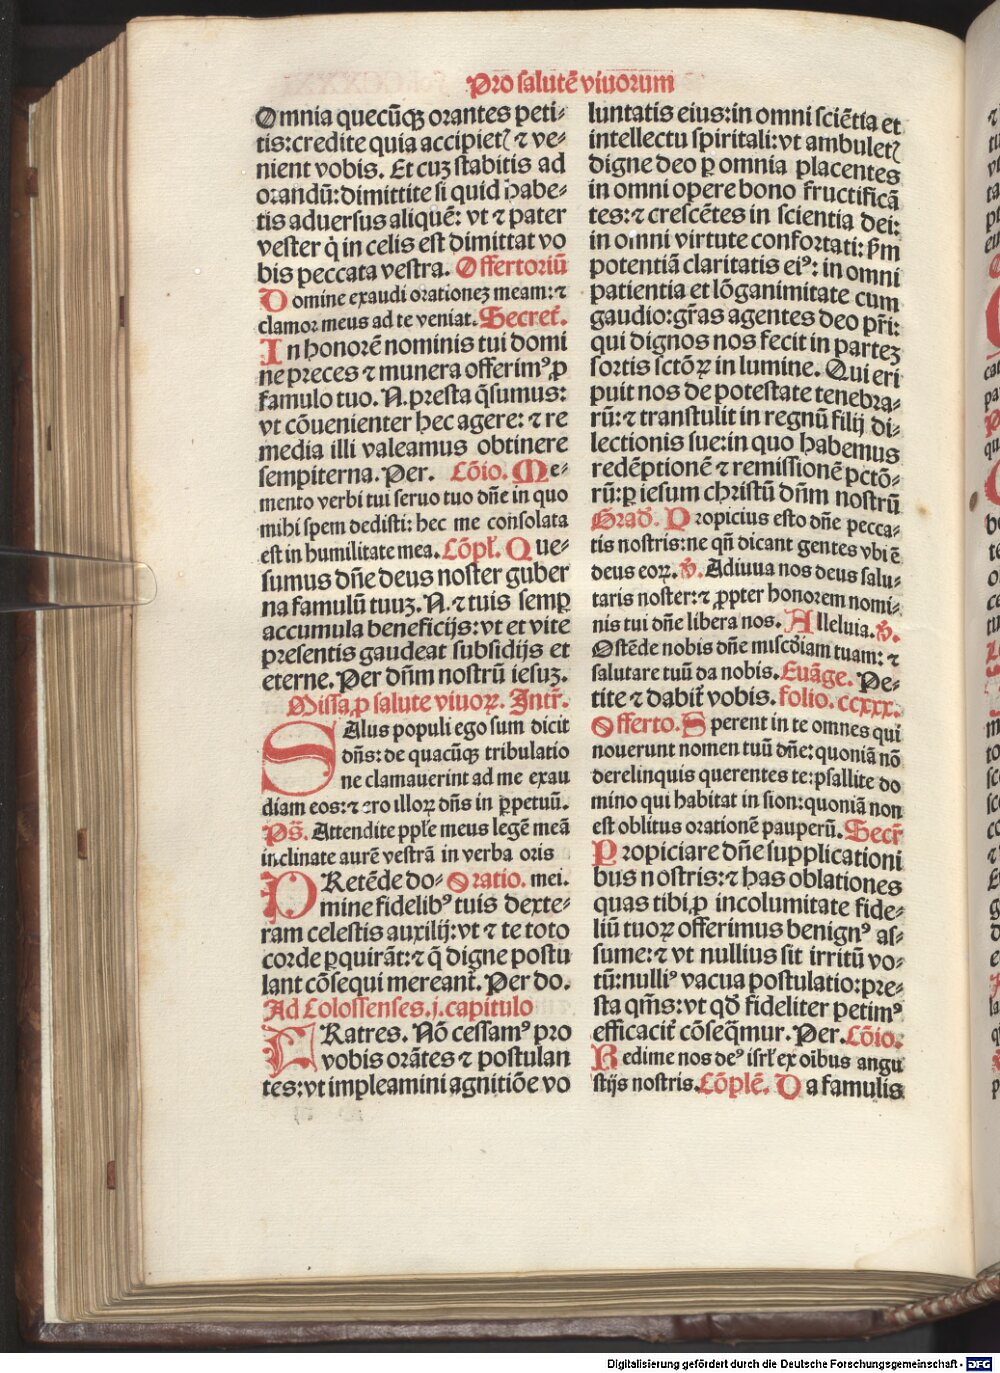 Pro salutē viuorum
Omnia quecūqꝫ orantes peti-
tis: credite quia accipietꝭ ⁊ ve-
nient vobis. Et cuꝫ stabitis ad
orandū: dimittite si quid habe-
tis aduersus aliquē: vt ⁊ pater
vester q̇ in celis est dimittat vo
bis peccata vestra. Offertoriū
Domine exaudi orationeꝫ meam: ⁊
clamor meus ad te veniat. Secret̄.
In honorē nominis tui domi
ne preces ⁊ munera offerimꝰ ꝓ
famulo tuo. N. presta q̄sumus:
vt cōuenienter hec agere: ⁊ re
media illi valeamus obtinere
sempiterna. Per. Cōio. Me-
mento verbi tui seruo tuo dn̄e in quo
mihi spem dedisti: hec me consolata
est in humilitate mea. Cōpl̄. Que-
sumus dn̄e deus noster guber
na famulū tuuꝫ. N. ⁊ tuis semꝑ
accumula beneficijs: vt et vite
presentis gaudeat subsidijs et
eterne. Per dn̄m nostrū iesuꝫ.
Missa ꝓ salute viuoꝝ. Intr̄.
SAlus populi ego sum dicit
dn̄s: de quacūqꝫ tribulatio
ne clamauerint ad me exau
diam eos: ⁊ ero illoꝝ dn̄s in ꝑpetuū.
Ps̄. Attendite pple meus legē meā
inclinate aurē vestrā in verba oris
PRetēde do- Oratio. mei.
mine fidelibꝰ tuis dexte-
ram celestis auxilij: vt ⁊ te toto
corde ꝑquirāt: ⁊ q̄ digne postu
lant cōsequi mereant̄. Per do.
Ad Colossenses. j. capitulo
FRatres. Nō cessamꝰ pro
vobis orātes ⁊ postulan
tes: vt impleamini agnitiōe vo
luntatis eius: in omni sciētia et
intellectu spiritali: vt ambuletꝭ
digne deo ꝑ omnia placentes
in omni opere bono fructificā
tes: ⁊ crescētes in scientia dei:
in omni virtute confortati: ẜm
potentiā claritatis eiꝰ: in omni
patientia et lōganimitate cum
gaudio: gr̄as agentes deo pr̄i:
qui dignos nos fecit in parteꝫ
sortis sctōꝝ in lumine. Qui eri
puit nos de potestate tenebra-
rū: ⁊ transtulit in regnū filij di-
lectionis sue: in quo habemus
redēptionē ⁊ remissionē pctō-
rū: ꝑ iesum christū dn̄m nostrū
Grad̄. Propicius esto dn̄e pecca-
tis nostris: ne qn̄ dicant gentes vbi ē
deus eoꝝ. ℣. Adiuua nos deus salu-
taris noster: ⁊ ꝓpter honorem nomi-
nis tui dn̄e libera nos. Alleluia. ℣.
Ostēde nobis dn̄e miscd̄iam tuam: ⁊
salutare tuū da nobis. Euāge. Pe-
tite ⁊ dabit̄ vobis. folio. ccxxx.
Offerto. Sperent in te omnes qui
nouerunt nomen tuū dn̄e: quoniā nō
derelinquis querentes te: psallite do
mino qui habitat in sion: quoniā non
est oblitus orationē pauperū. Secr̄
Propiciare dn̄e supplicationi
bus nostris: ⁊ has oblationes
quas tibi ꝓ incolumitate fide-
liū tuoꝝ offerimus benignꝰ as-
sume: ⁊ vt nullius sit irritū vo-
tū: nulliꝰ vacua postulatio: pre-
sta qm̄s: vt qd̄ fideliter petimꝰ
efficacit̄ cōseq̄mur. Per. Cōio.
Redime nos deꝰ isrl̄ ex oībus angu
stijs nostris. Cōplē. Da famulis
Digitalisierung gefördert durch die Deutsche Forschungsgemeinschaft - DFG